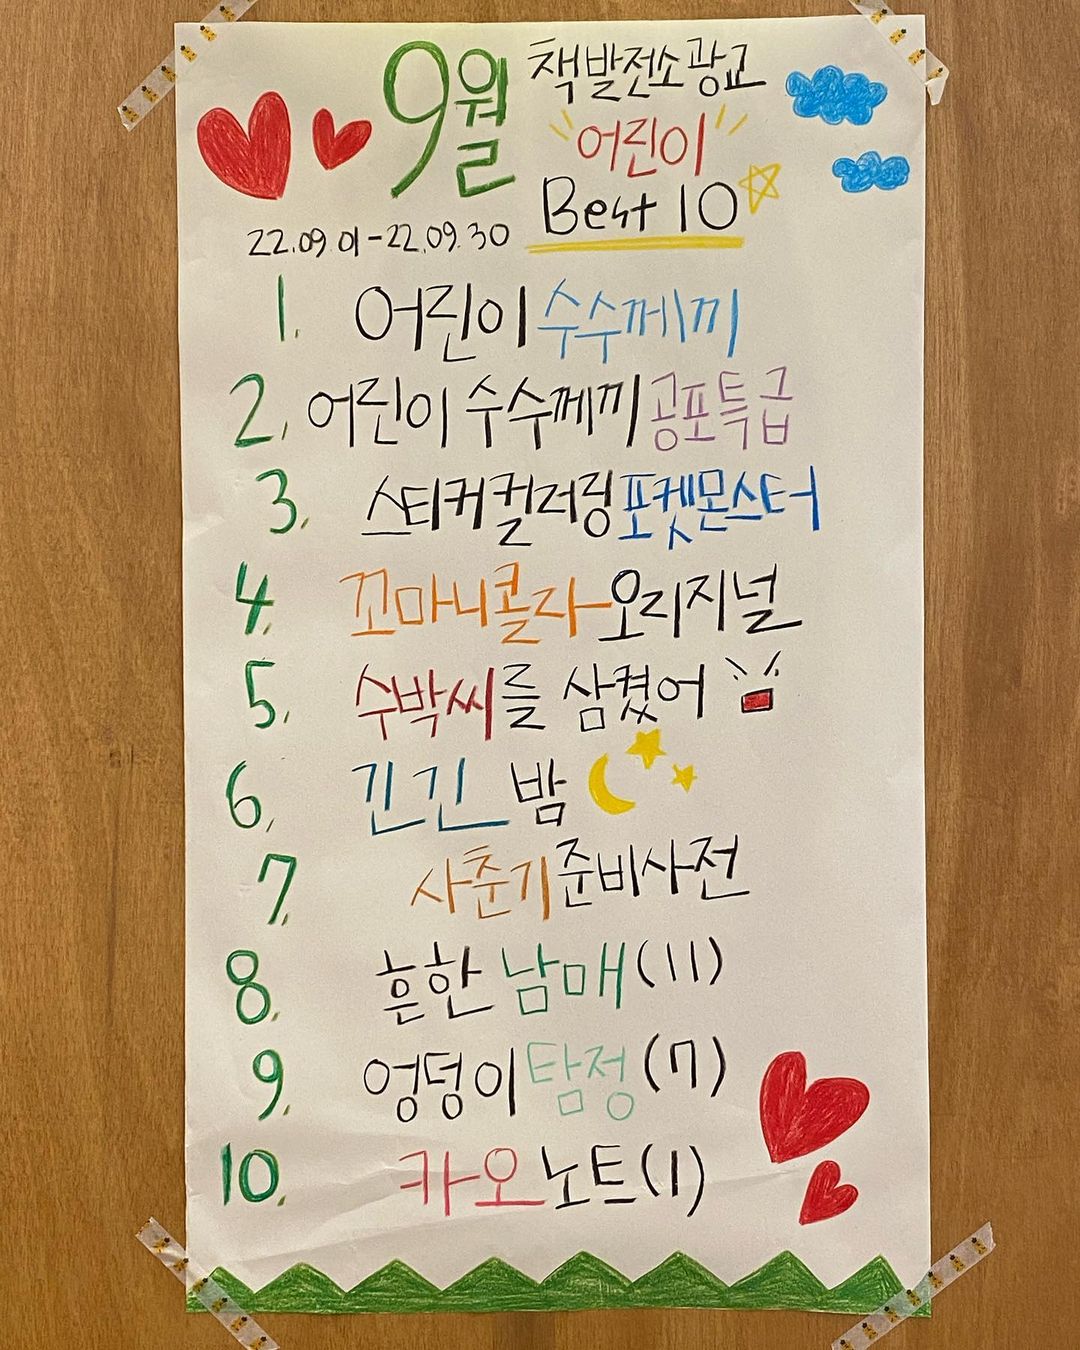 9월 책발전소광교
어린이
Best 10
22.09.01-22.09.30
1. 어린이 수수께끼
2. 어린이 수수께끼 공포특급
3. 스티커컬러링 포켓몬스터
4. 꼬마니콜라-오리지널
5. 수박씨를 삼켰어
6. 긴긴 밤
7. 사춘기준비사전
8. 흔한남매(11)
9. 엉덩이탐정(7)
10. 카오노트(1)